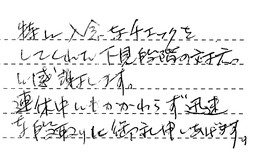 特に入念なチェックを
してくれた下見段階の対応
に感謝します。
連休中にもかかわらず迅速
な段取りに御礼申しあげます。